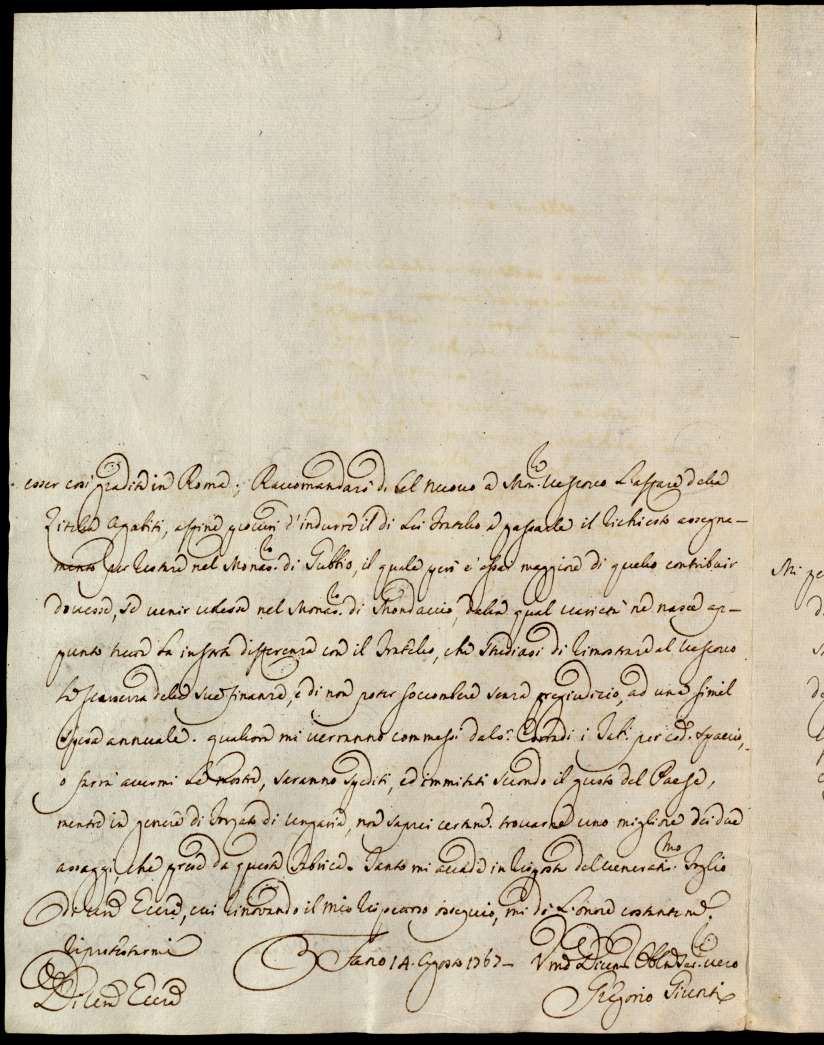 esser così gradita in Roma; Raccomandarò di bel nuovo a Mon.re Vescovo l'affare della
Zitella affine procuri d'indurre il di Lei Fratello a passarle il richiesto assegna-
mento per restare nel Monas.ro di Gubbio, il quale però è assai maggiore di quello contribuir
dovesse, se venir volesse nel Monas.ro di, dalla qual varietà ne nasce ap-
punto tutta la insorta differenza con il Fratello, che studiasi di rimostrare al Vescovo
la scarsezza delle sue finanze, e di non poter soccombere senza pregiudizio, ad una simil
spesa annuale. qualora mi verranno commessi dalo: i Tab: per cod. spaccio,
o farrà avermi le mostre, saranno spediti, ed immitati secondo il gusto del Paese,
mentre in genere di di Ungaria, non saprei certam. trovarne uno migliore dei due
assaggi, che prese da questa fabrica. Tanto mi accade in risposta del venerati.mo Foglio
di Vra Eccza, cui rinovando il mio rispettoso ossequio, mi dò l'onore costantem.
riprotestarmi
Fano 14. Agosto 1767 –
Di Vra Eccza
Gregorio Giunti
Mi pe